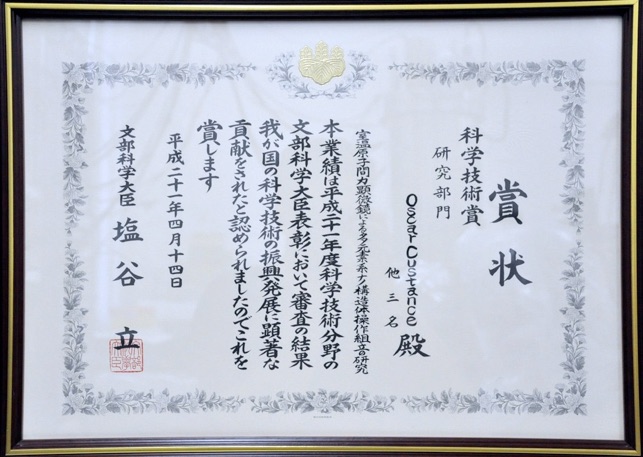 賞状
科学技術賞
研究部門
Oscar Custance
他三名
殿
室温原子間力顕微鏡による多元素系ナノ構造体操作組立研究
本業績は平成二十一年度科学技術分野の
文部科学大臣表彰において審査の結果
我が国の科学技術の振興発展に顕著な
貢献をされたと認められましたのでこれを
賞します
平成二十一年四月十四日
文部科学大臣 塩谷 立